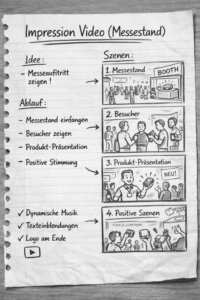 Impression Video (Messestand)
Idee:
– Messeauftritt
zeigen!
Ablauf:
– Messestand einfangen
– Besucher zeigen
– Produkt-Präsentation
– Positive Stimmung
✓ Dynamische Musik
✓ Texteinblendungen
✓ Logo am Ende
Szenen:
1. Messestand
BOOTH
2. Besucher
3. Produkt-Präsentation
NEU!
4. Positive Szenen